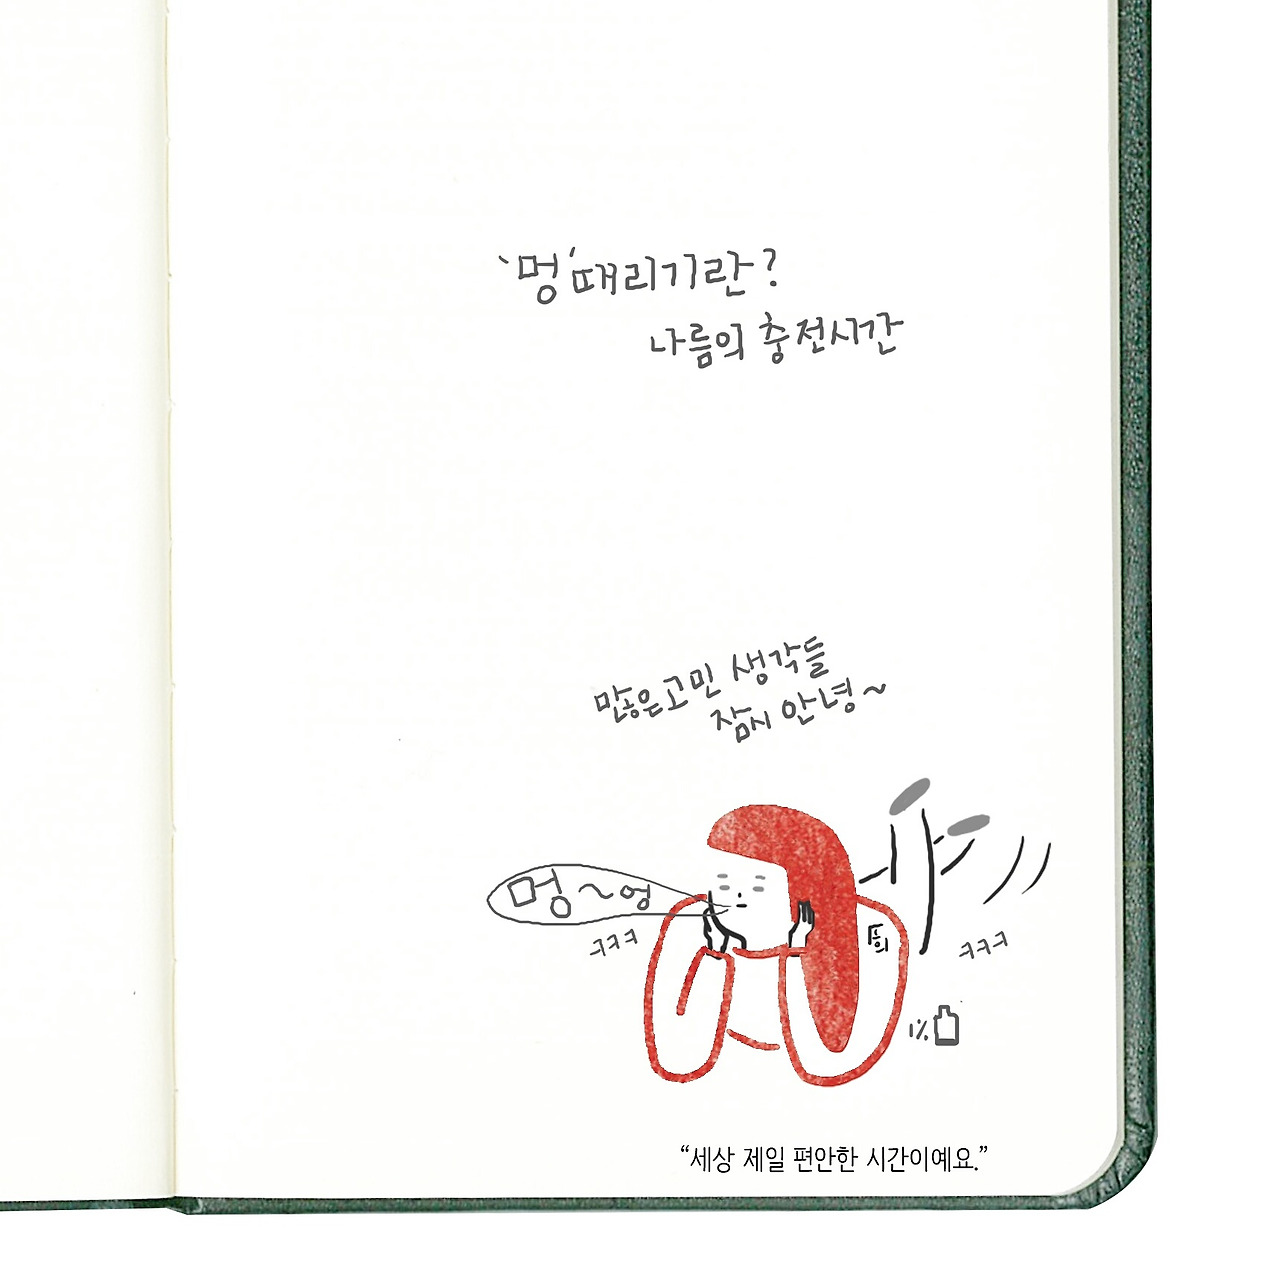 '멍'때리기란?
나름의 충전시간
많은고민 생각들
잠시 안녕~
멍~엉
ㅋㅋㅋ
ㅋㅋㅋ
1%
"세상 제일 편안한 시간이예요."